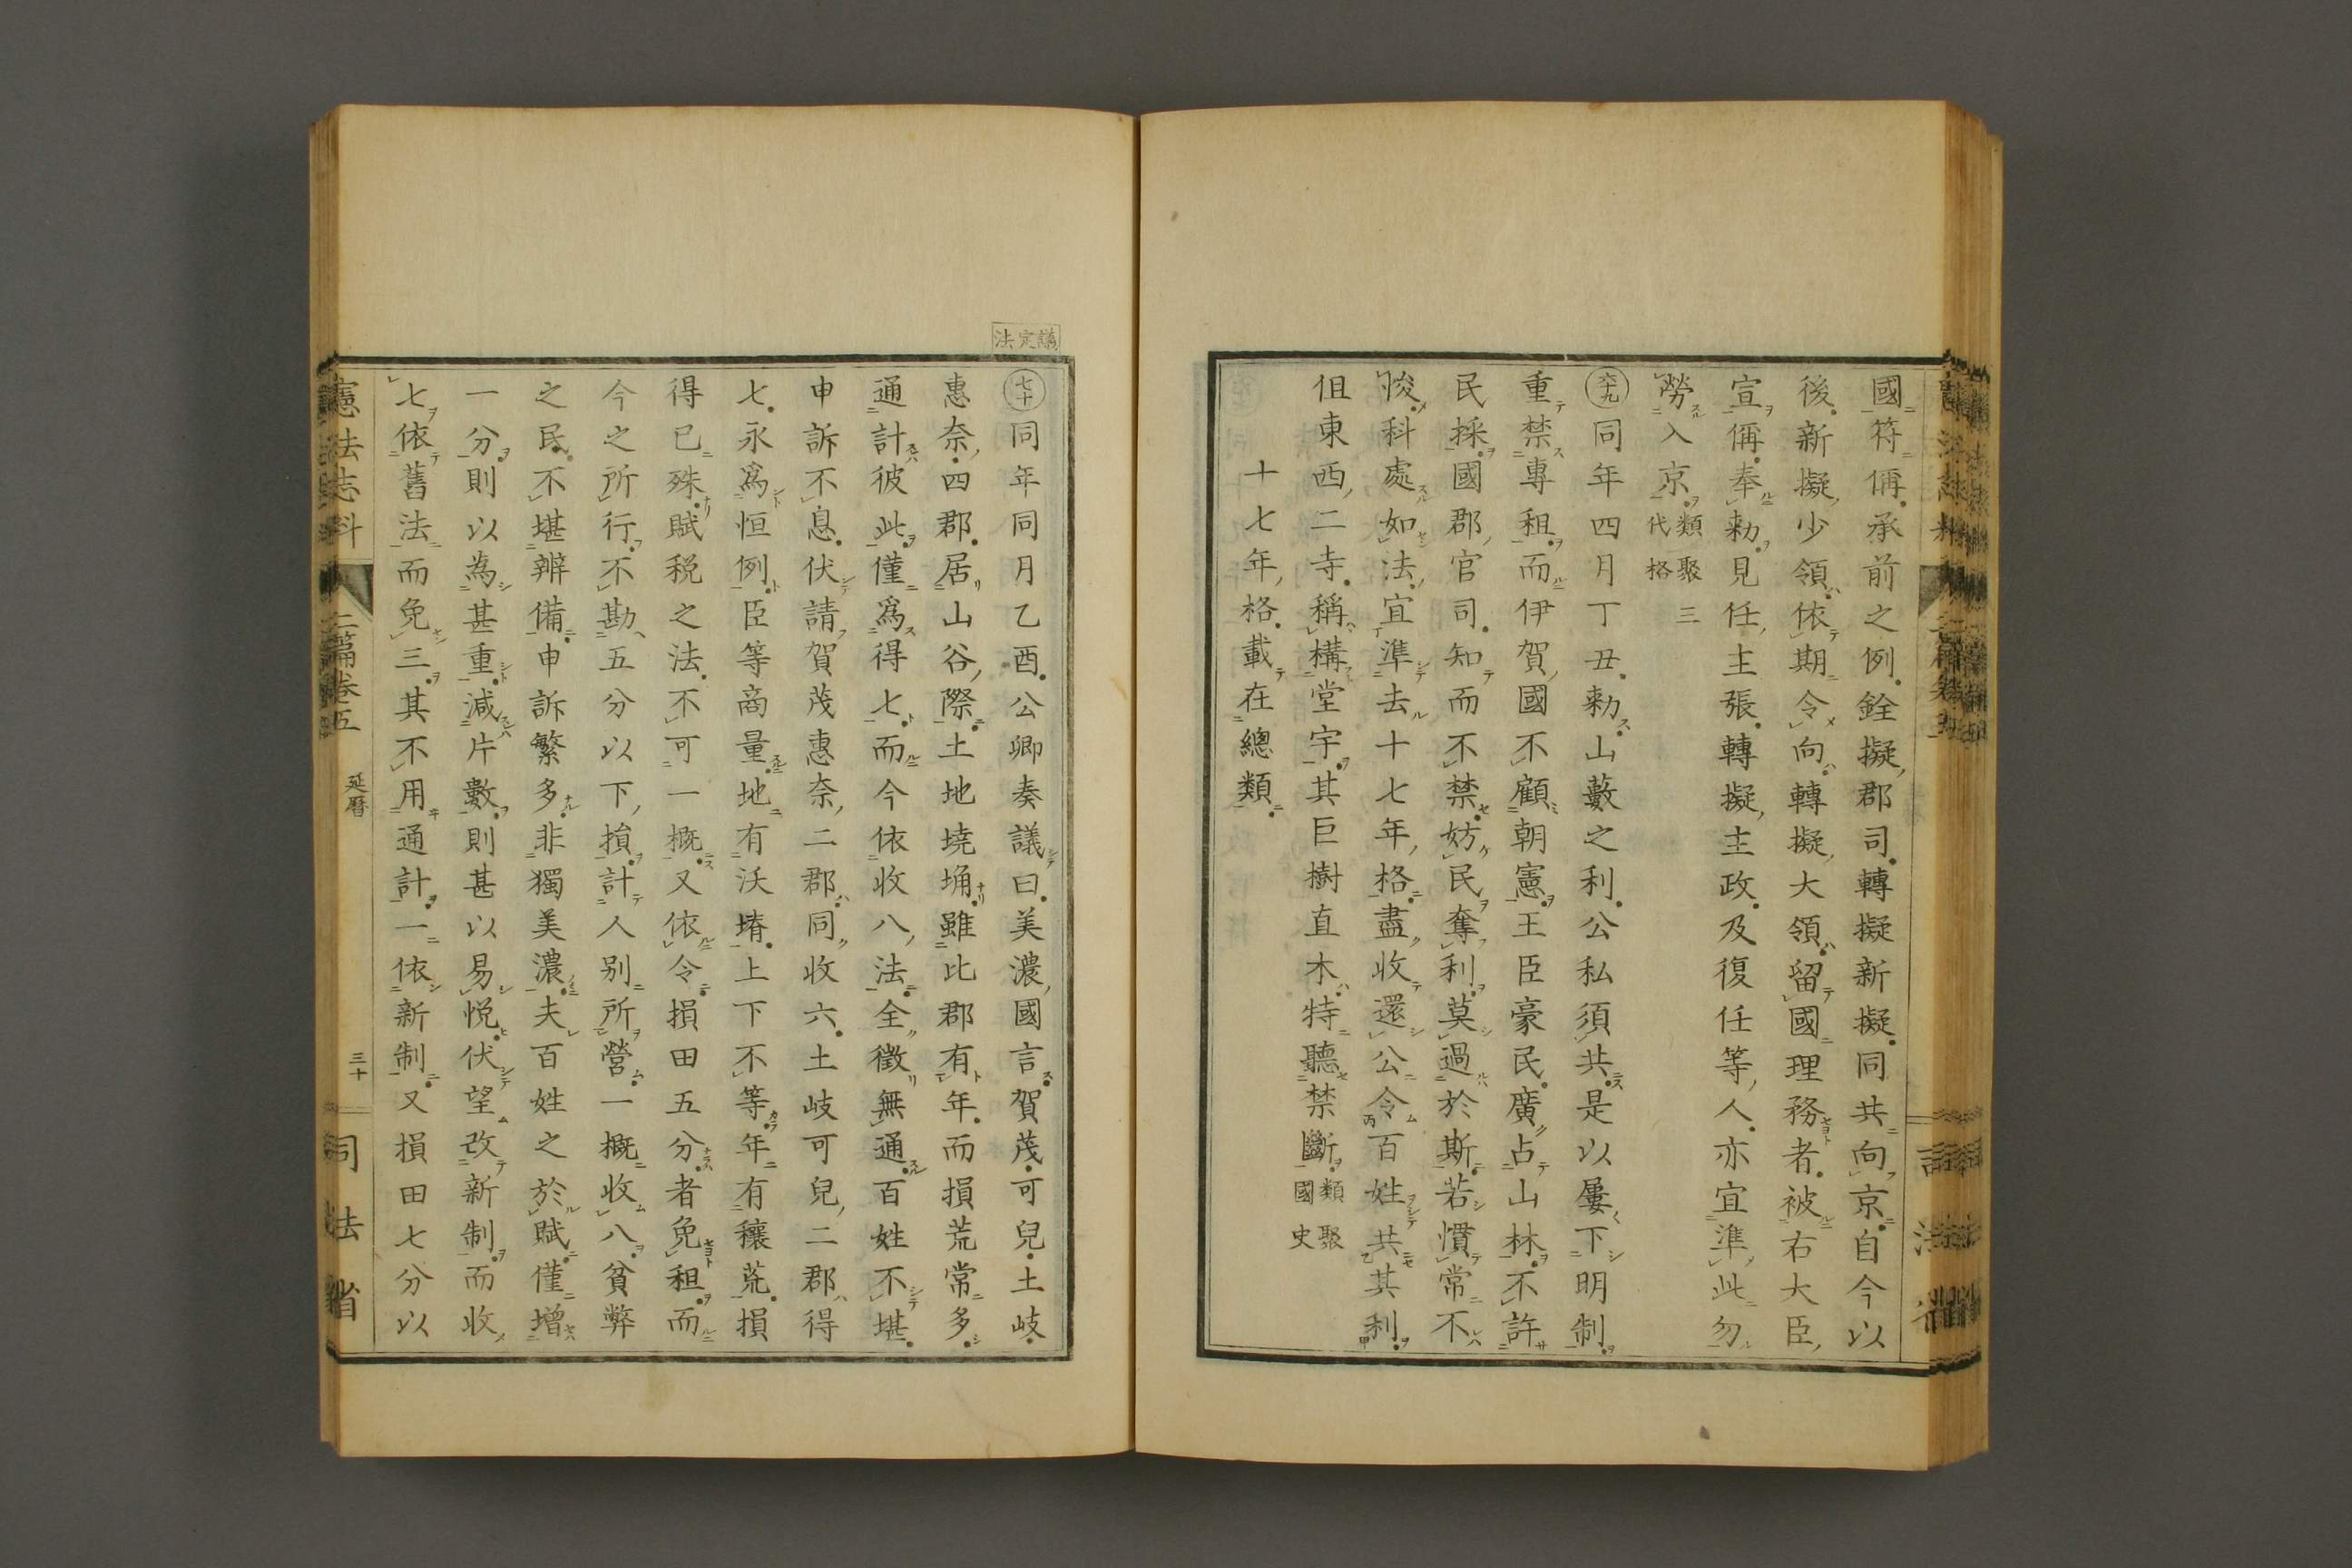 國符偁承前之例銓擬郡司轉擬新擬同共向京自今以
後新擬少領依期令向轉擬大領留國理務者被右大臣
宣偁奉勅見任主張轉擬主政及復任等人亦宜準此勿
勞入京類聚三代格
六十九同年四月丁丑勅山藪之利公私須共是以屢下明制
重禁專租而伊賀國不顧朝憲王臣豪民廣占山林不許
民採國郡官司知而不禁妨民奪利莫過於斯若慣常不
悛科處如法宜準去十七年格盡收還公令百姓共其利
但東西二寺稱構堂宇其巨樹直木特聽禁斷類聚國史
十七年格載在總類
議定法
七十同年同月乙酉公卿奏議曰美濃國言賀茂可兒土岐
惠奈四郡居山谷際土地墝埆雖比郡有年而損荒常多
通計彼此僅爲得七而今依收八法全徵無通百姓不堪
申訴不息伏請賀茂惠奈二郡同收六土岐可兒二郡得
七永爲恒例臣等商量地有沃塉上下不等年有穰荒損
得已殊賦税之法不可一概又依令損田五分者免租而
今之所行不勘五分以下損計人别所營一概收八貧弊
之民不堪辨備申訴繁多非獨美濃夫百姓之於賦僅增
一分則以為甚重減片數則甚以易悦伏望改新制而收
七依舊法而免三其不用通計一依新制又損田七分以
憲法志料 二篇卷五 延曆 三十 司法省